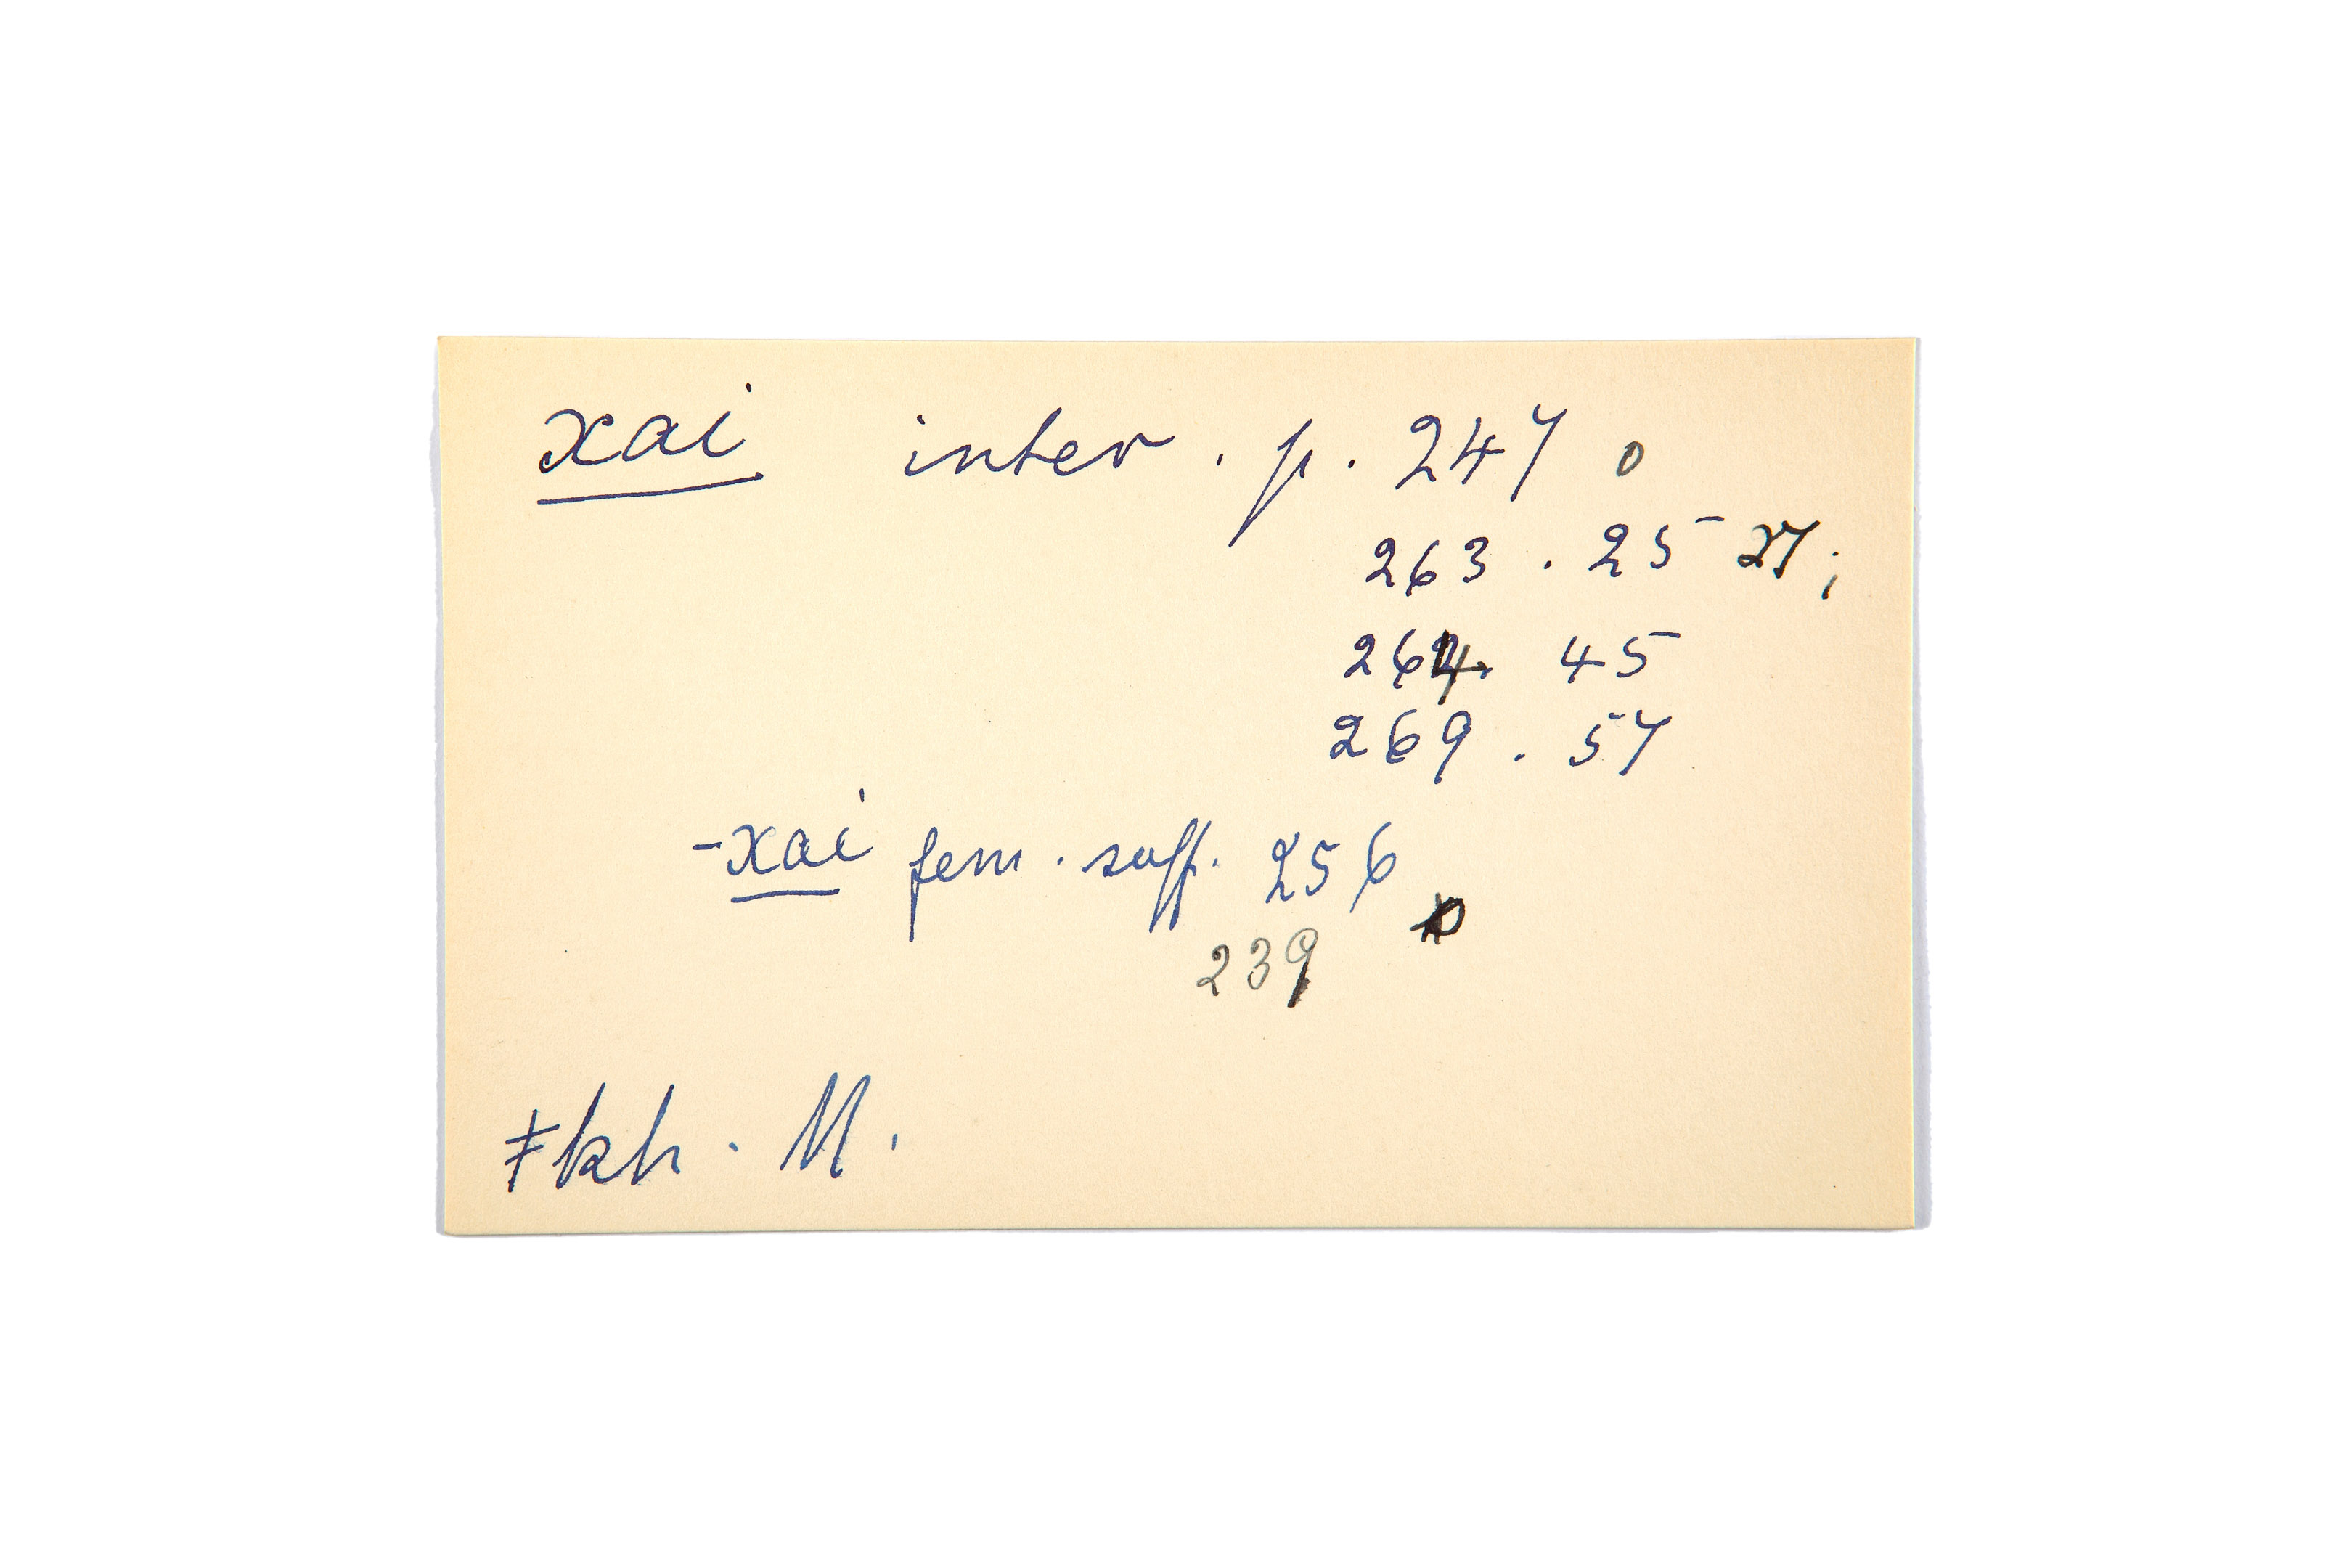 xai inter. p. 247 o
263. 25 27;
264. 45
269. 57
-xai fem. suff. 256
239
ǂkh. M.